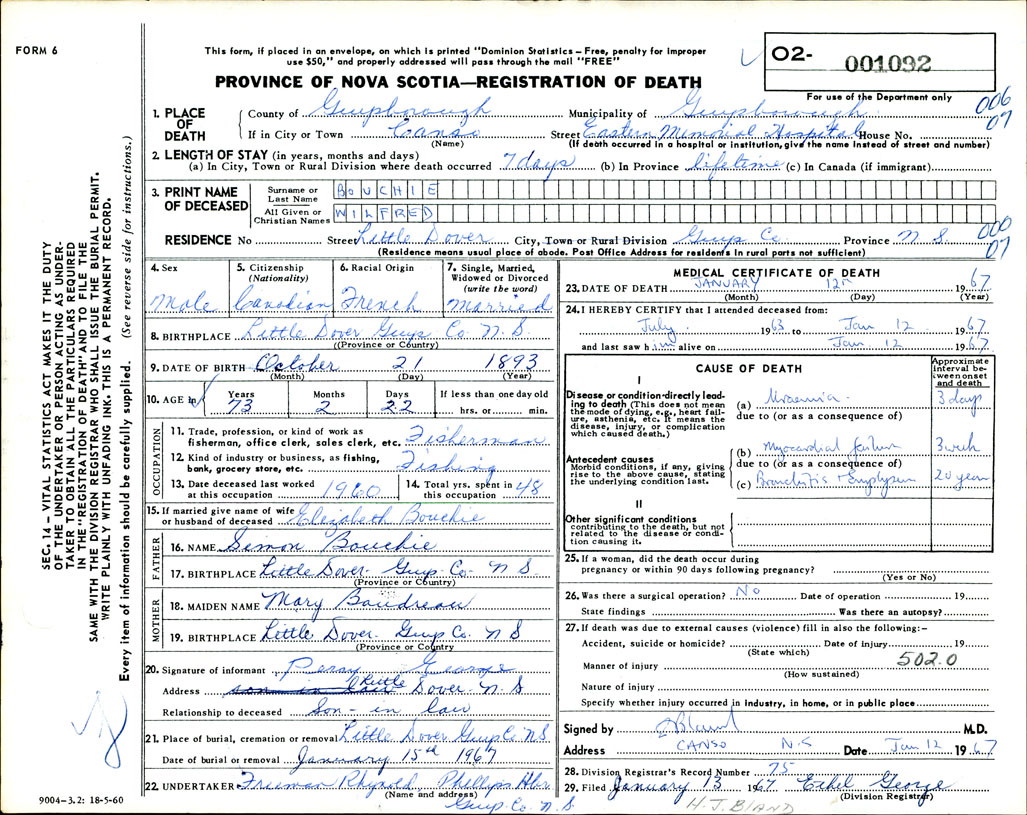 FORM 6
This form, if placed in an envelope, on which is printed "Dominion Statistics – Free, penalty for improper
use $50," and properly addressed will pass through the mail "FREE"
O2- 001092
For use of the Department only
PROVINCE OF NOVA SCOTIA—REGISTRATION OF DEATH
006
07
1. PLACE OF DEATH County of Guysborough Municipality of Guysborough
If in City or Town Canso Street Eastern Memorial Hospital House No.
(Name) (If death occurred in a hospital or institution, give the name instead of street and number)
2. LENGTH OF STAY (in years, months and days)
(a) In City, Town or Rural Division where death occurred 7 days (b) In Province lifetime (c) In Canada (if immigrant)
3. PRINT NAME OF DECEASED
Surname or Last Name BOUCHIE
All Given or Christian Names WILFRED
000
07
RESIDENCE No Street Little Dover City, Town or Rural Division Guys Co Province N S
(Residence means usual place of abode. Post Office Address for residents in rural parts not sufficient)
4. Sex Male
5. Citizenship (Nationality) Canadian
6. Racial Origin French
7. Single, Married, Widowed or Divorced (write the word) Married
8. BIRTHPLACE Little Dover Guys. Co. N. S.
(Province or Country)
9. DATE OF BIRTH October 21 1893
(Month) (Day) (Year)
10. AGE in Years 73 Months 2 Days 22 If less than one day old hrs. or min.
OCCUPATION
11. Trade, profession, or kind of work as
fisherman, office clerk, sales clerk, etc. Fisherman
12. Kind of industry or business, as fishing,
bank, grocery store, etc. Fishing
13. Date deceased last worked at this occupation 1960
14. Total yrs. spent in this occupation 48
15. If married give name of wife or husband of deceased Elizabeth Bouchie
FATHER
16. NAME Simon Bouchie
17. BIRTHPLACE Little Dover Guys Co N S.
(Province or Country)
MOTHER
18. MAIDEN NAME Mary Boudreau
19. BIRTHPLACE Little Dover Guys Co. N S
(Province or Country)
20. Signature of informant Perry George
Address son in law Little Dover. N. S
Relationship to deceased Son - in law
21. Place of burial, cremation or removal Little Dover Guys Co N.S
Date of burial or removal January 15th 1967
22. UNDERTAKER Freeman Rhynold Phillips Hbr
(Name and address)
Guys. Co. N. S.
MEDICAL CERTIFICATE OF DEATH
23. DATE OF DEATH JANUARY 12th 1967
(Month) (Day) (Year)
24. I HEREBY CERTIFY that I attended deceased from:
July 1963 to Jan 12 1967
and last saw him alive on Jan 12 1967
CAUSE OF DEATH
Approximate interval between onset and death
I
Disease or condition directly leading to death (This does not mean the mode of dying, e.g., heart failure, asthenia, etc. It means the disease, injury, or complication which caused death.)
(a) Uraemia 3 days
due to (or as a consequence of)
Antecedent causes
Morbid conditions, if any, giving rise to the above cause, stating the underlying condition last.
(b) Myocardial failure 3 week
due to (or as a consequence of)
(c) Bronchitis + Emphysem 20 years
II
Other significant conditions
contributing to the death, but not related to the disease or condition causing it.
25. If a woman, did the death occur during
pregnancy or within 90 days following pregnancy?
(Yes or No)
26. Was there a surgical operation? No Date of operation 19
State findings Was there an autopsy?
27. If death was due to external causes (violence) fill in also the following:–
Accident, suicide or homicide? Date of injury 19
(State which)
Manner of injury 502.0
(How sustained)
Nature of injury
Specify whether injury occurred in industry, in home, or in public place
Signed by Bland M.D.
Address CANSO N.S Date Jan 12 1967
28. Division Registrar's Record Number 75
29. Filed January 13 1967 Ethel George
(Division Registrar)
H. J. BLAND
SEC. 14 – VITAL STATISTICS ACT MAKES IT THE DUTY
OF THE UNDERTAKER OR PERSON ACTING AS UNDER-
TAKER TO OBTAIN ALL THE PARTICULARS REQUIRED
IN THE "REGISTRATION OF DEATH" AND TO FILE THE
SAME WITH THE DIVISION REGISTRAR WHO SHALL ISSUE THE BURIAL PERMIT.
WRITE PLAINLY WITH UNFADING INK. THIS IS A PERMANENT RECORD.
Every item of information should be carefully supplied. (See reverse side for instructions.)
9004–3.2: 18-5-60